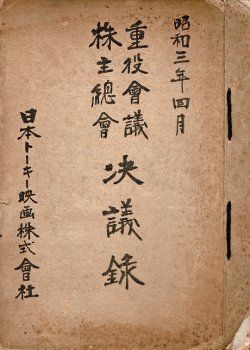 昭和三年四月
重役會議
株主總會
決議録
日本トーキー映画株式會社